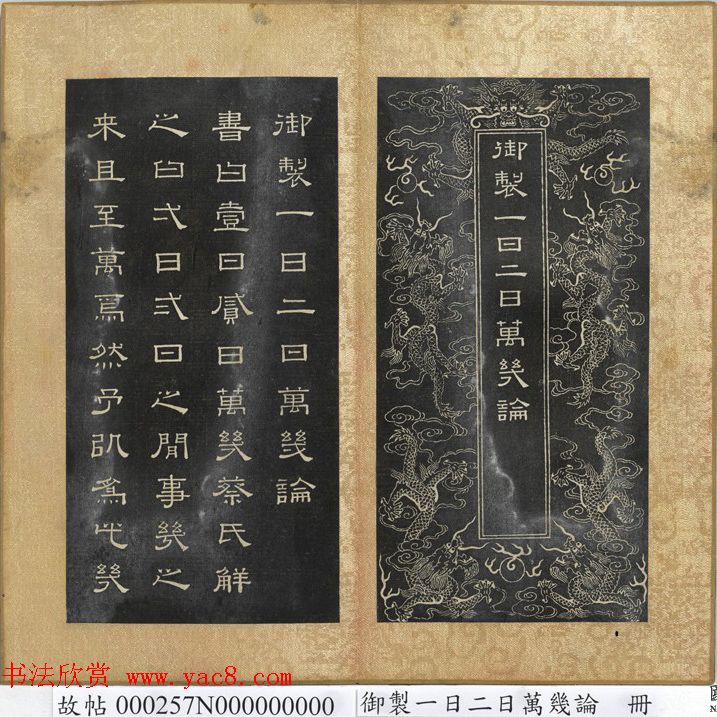 御製一日二日萬幾論
御製一日二日萬幾論
書曰壹日貳日萬幾蔡氏解
之曰弌日弍日之閒事幾之
来且至萬焉然予以為此幾
书法欣赏 www.yac8.com
故帖 000257N000000000
御製一日二日萬幾論 冊